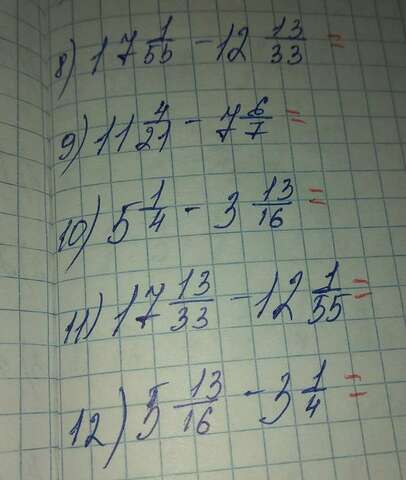 8) 17 1/55 - 12 13/33 =
9) 11 4/21 - 7 6/7 =
10) 5 1/4 - 3 13/16 =
11) 17 13/33 - 12 1/55 =
12) 5 13/16 - 3 1/4 =